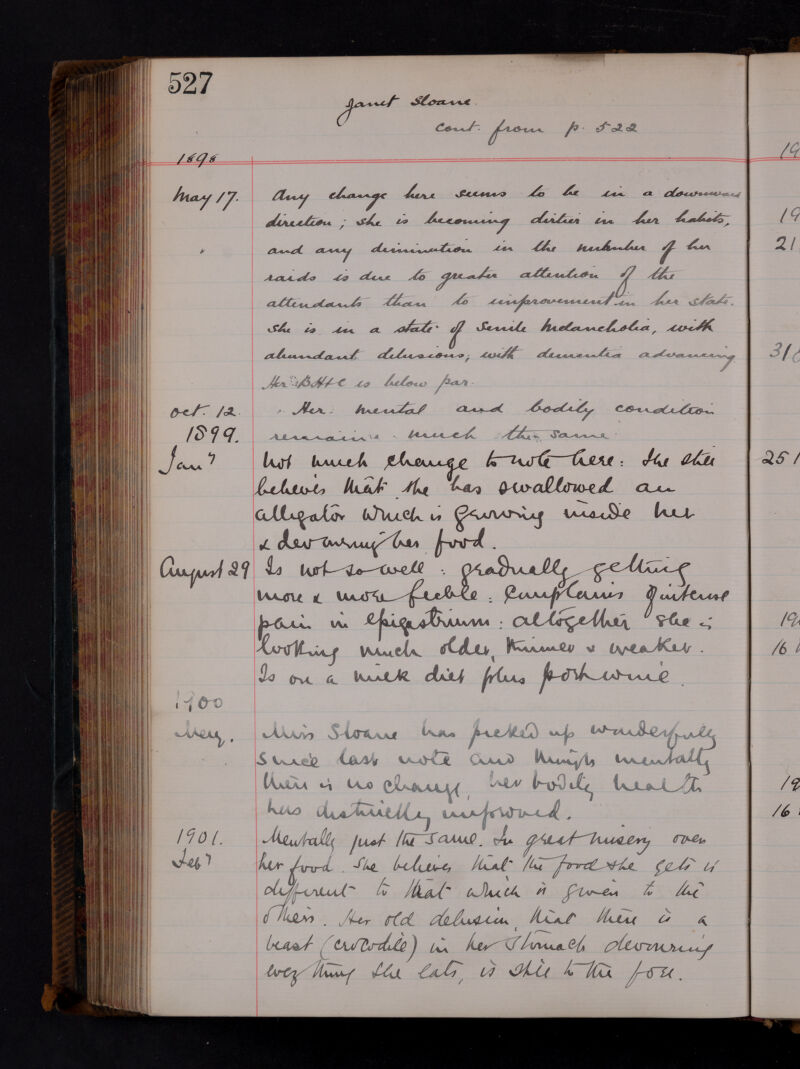 527
Janet Sloane.
cont. from p. 522
1898
May 17. Any change here seems to be in a downward
direction; she is becoming dirtier in her habits,
and any diminution in the number of her
raids is due to greater attention of the
attendants than to improvement in her state.
She is in a state of Senile Melancholia, with
abundant delusions, with dementia advancing
Her BH+C is below par.
Oct. 12. Her mental and bodily condition
1899. remains much the same.
Jan 7 Not much change to note here: She still
believes that she has swallowed an
alligator which is growing inside her
& devouring her food.
August 29 Is not so well: gradually getting
more & more feeble: Complains of intense
pain in epigastrium: altogether she is
looking much older, thinner & weaker.
Is on a milk diet plus port wine.
1900
May. Miss Sloane has picked up wonderfully
since last note and though mentally
there is no change, her bodily health
has distinctly improved.
1901. Mentally just the same. In great misery over
Feb 7 her food. She believes that the food she gets is
different to that which is given to the
others. Her old delusion, that there is a
beast (crocodile) in her stomach devouring
everything she eats, is still to the fore.
19
19
21
31
251
19
16
19
16